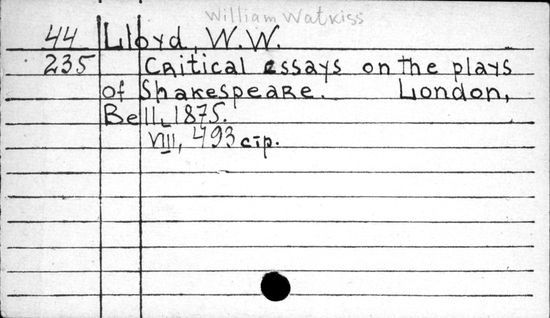 William Watkiss
44 Lloyd, W.W.
235 Critical essays on the plays
of Shakespeare. London,
Bell, 1875.
VIII, 493 стр.